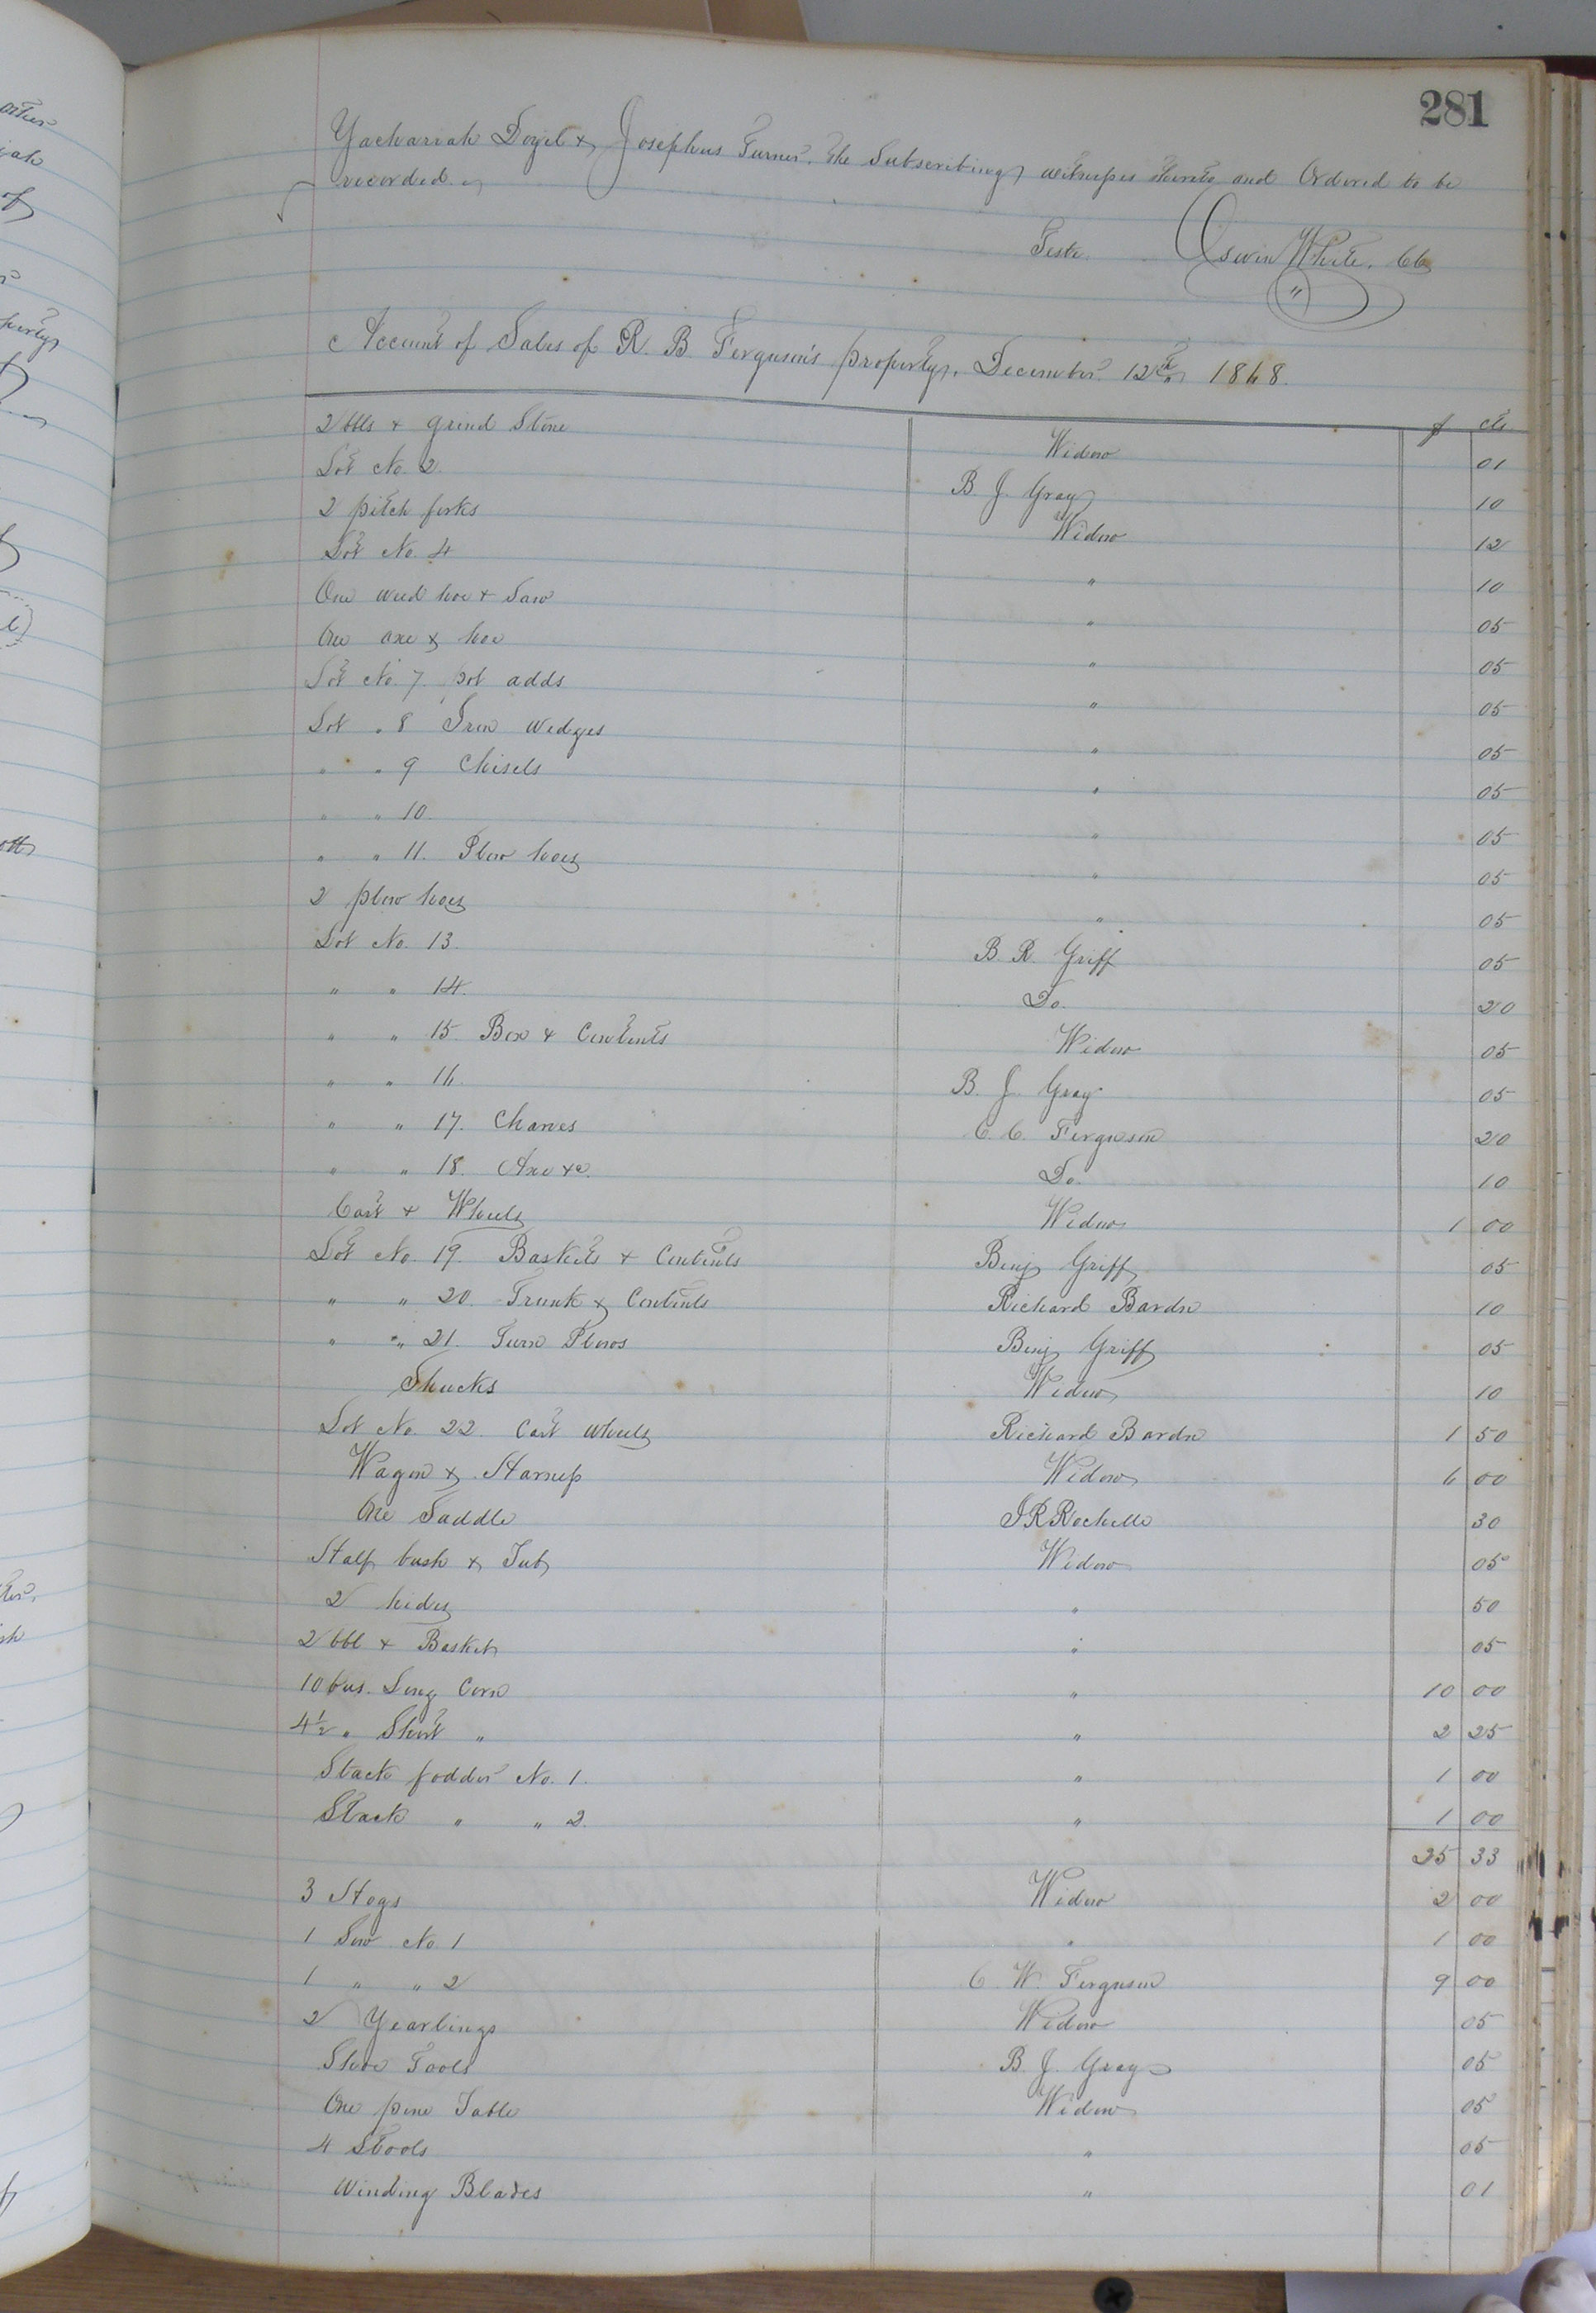 281
Zachariah Doyel & Josephus Turner. the Subscribing witnesses thereto and Ordered to be
recorded.
Teste. Oswin White, CC
Account of Sales of R. B. Ferguson's property, December 12th 1868.
$ cts
2 bbls & grind Stone Widow 01
Lot No. 2 B. J. Gray 10
2 pitch forks Widow 12
Lot No. 4 " 10
One weed hoe & Saw " 05
One axe & hoe " 05
Lot No. 7. pot adds " 05
Lot " 8 Iron Wedges " 05
" " 9 Chisels " 05
" " 10. " 05
" " 11. Plow hoes " 05
2 plow hoes " 05
Lot No. 13. B. R. Griff 05
" " 14. Do. 20
" " 15. Box & Contents Widow 05
" " 16. B. J. Gray 05
" " 17. C. C. Ferguson 20
" " 18. Axe &c. Do. 10
Cart & Wheels Widow 1 00
Lot No. 19. Baskets & Contents Benj Griff 05
" " 20. Trunk & Contents Richard Bardn 10
" " 21. Turn Plows Benj Griff 05
Shucks Widow 10
Lot No. 22. Cart wheels Richard Bardn 1 50
Wagon & Harness Widow 6 00
One Saddle J R Rochelle 30
Half bush & Tub Widow 05
2 hides " 50
2 bbl & Basket " 05
10 bus. Long Corn " 10 00
4½ " Short " " 2 25
Stack fodder No. 1. " 1 00
Stack " " 2. " 1 00
25 33
3 Hogs Widow 2 00
1 Sow No. 1 " 1 00
1 " " 2 C. W. Ferguson 9 00
2 Yearlings Widow 05
Shoe Tools B. J. Gray 05
One pine Table Widow 05
4 Stools " 05
Winding Blades " 01